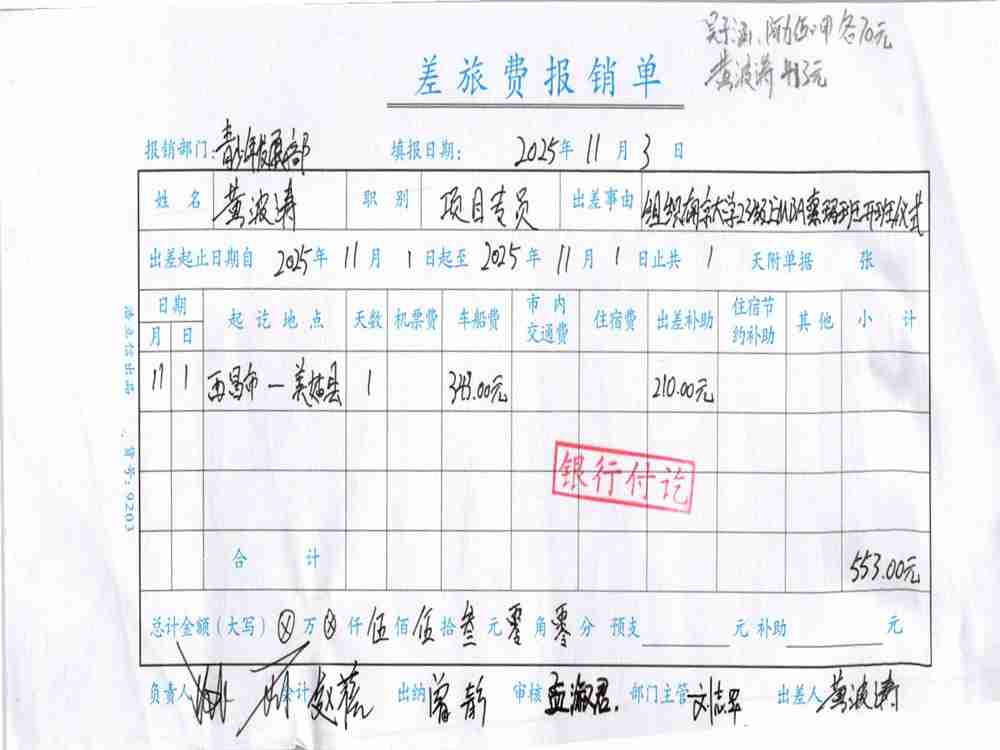 各70元
黄波涛 413元
差旅费报销单
报销部门: 青少年发展部 填报日期: 2025年 11月 3日
姓名 黄波涛 职别 项目专员 出差事由 组织南京大学23级EMBA 班开班仪式
出差起止日期自 2025年 11月 1日起至 2025年 11月 1日止共 1 天附单据 张
日期 起讫地点 天数 机票费 车船费 市内交通费 住宿费 出差补助 住宿节约补助 其他 小计
月 日
11 1 西昌市—美姑县 1 343.00元 210.00元
银行付讫
合计 553.00元
总计金额(大写) ⊗万 ⊗仟 伍佰 伍拾 叁元 零角 零分 预支 元 补助 元
负责人 会计 赵蓓 出纳 曾静 审核 孟淑君. 部门主管 刘志军 出差人 黄波涛
货号: 9203